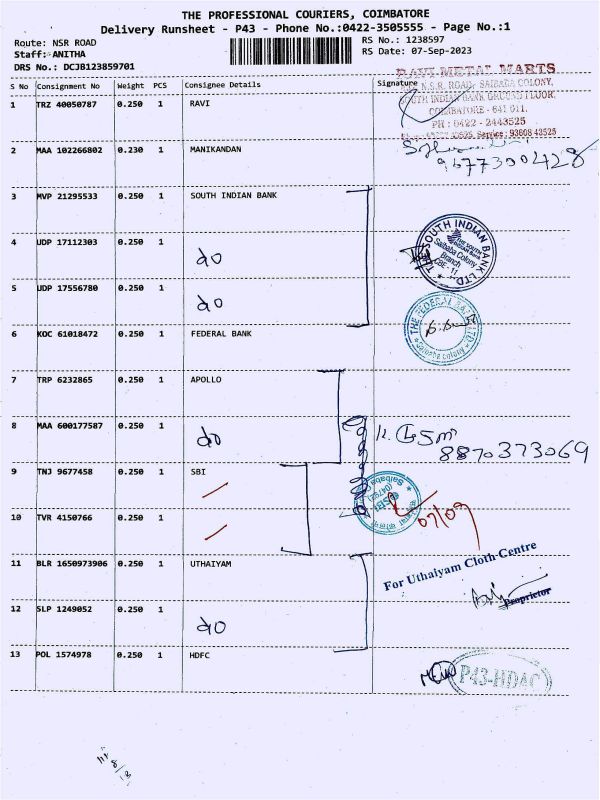 THE PROFESSIONAL COURIERS, COIMBATORE
Delivery Runsheet - P43 - Phone No.:0422-3505555 - Page No.:1
Route: NSR ROAD
RS No.: 1238597
Staff: ANITHA
RS Date: 07-Sep-2023
DRS No.: DCJB123859701
S No Consignment No Weight PCS Consignee Details Signature
RAVI METAL MARTS
N.S.R. ROAD, SAIBABA COLONY,
SOUTH INDIAN BANK GROUND FLOOR,
COIMBATORE - 641 011.
PH : 0422 - 2443525
Service : 93608 43525
1 TRZ 40050787 0.250 1 RAVI
2 MAA 102266802 0.230 1 MANIKANDAN
3 MVP 21295533 0.250 1 SOUTH INDIAN BANK
4 UDP 17112303 0.250 1 do
THE SOUTH INDIAN BANK LTD
THE SOUTH INDIAN BANK
Saibaba Colony
Branch
CBE - 11
5 UDP 17556780 0.250 1 do
THE FEDERAL BANK LTD
Saibaba colony
6 KOC 61018472 0.250 1 FEDERAL BANK
7 TRP 6232865 0.250 1 APOLLO
8 MAA 600177587 0.250 1 do
8870373069
9 TNJ 9677458 0.250 1 SBI
SBI
Saibaba
07/09
10 TVR 4150766 0.250 1
11 BLR 1650973906 0.250 1 UTHAIYAM
For Uthaiyam Cloth Centre
Proprietor
12 SLP 1249052 0.250 1 do
13 POL 1574978 0.250 1 HDFC
P43-HDAC